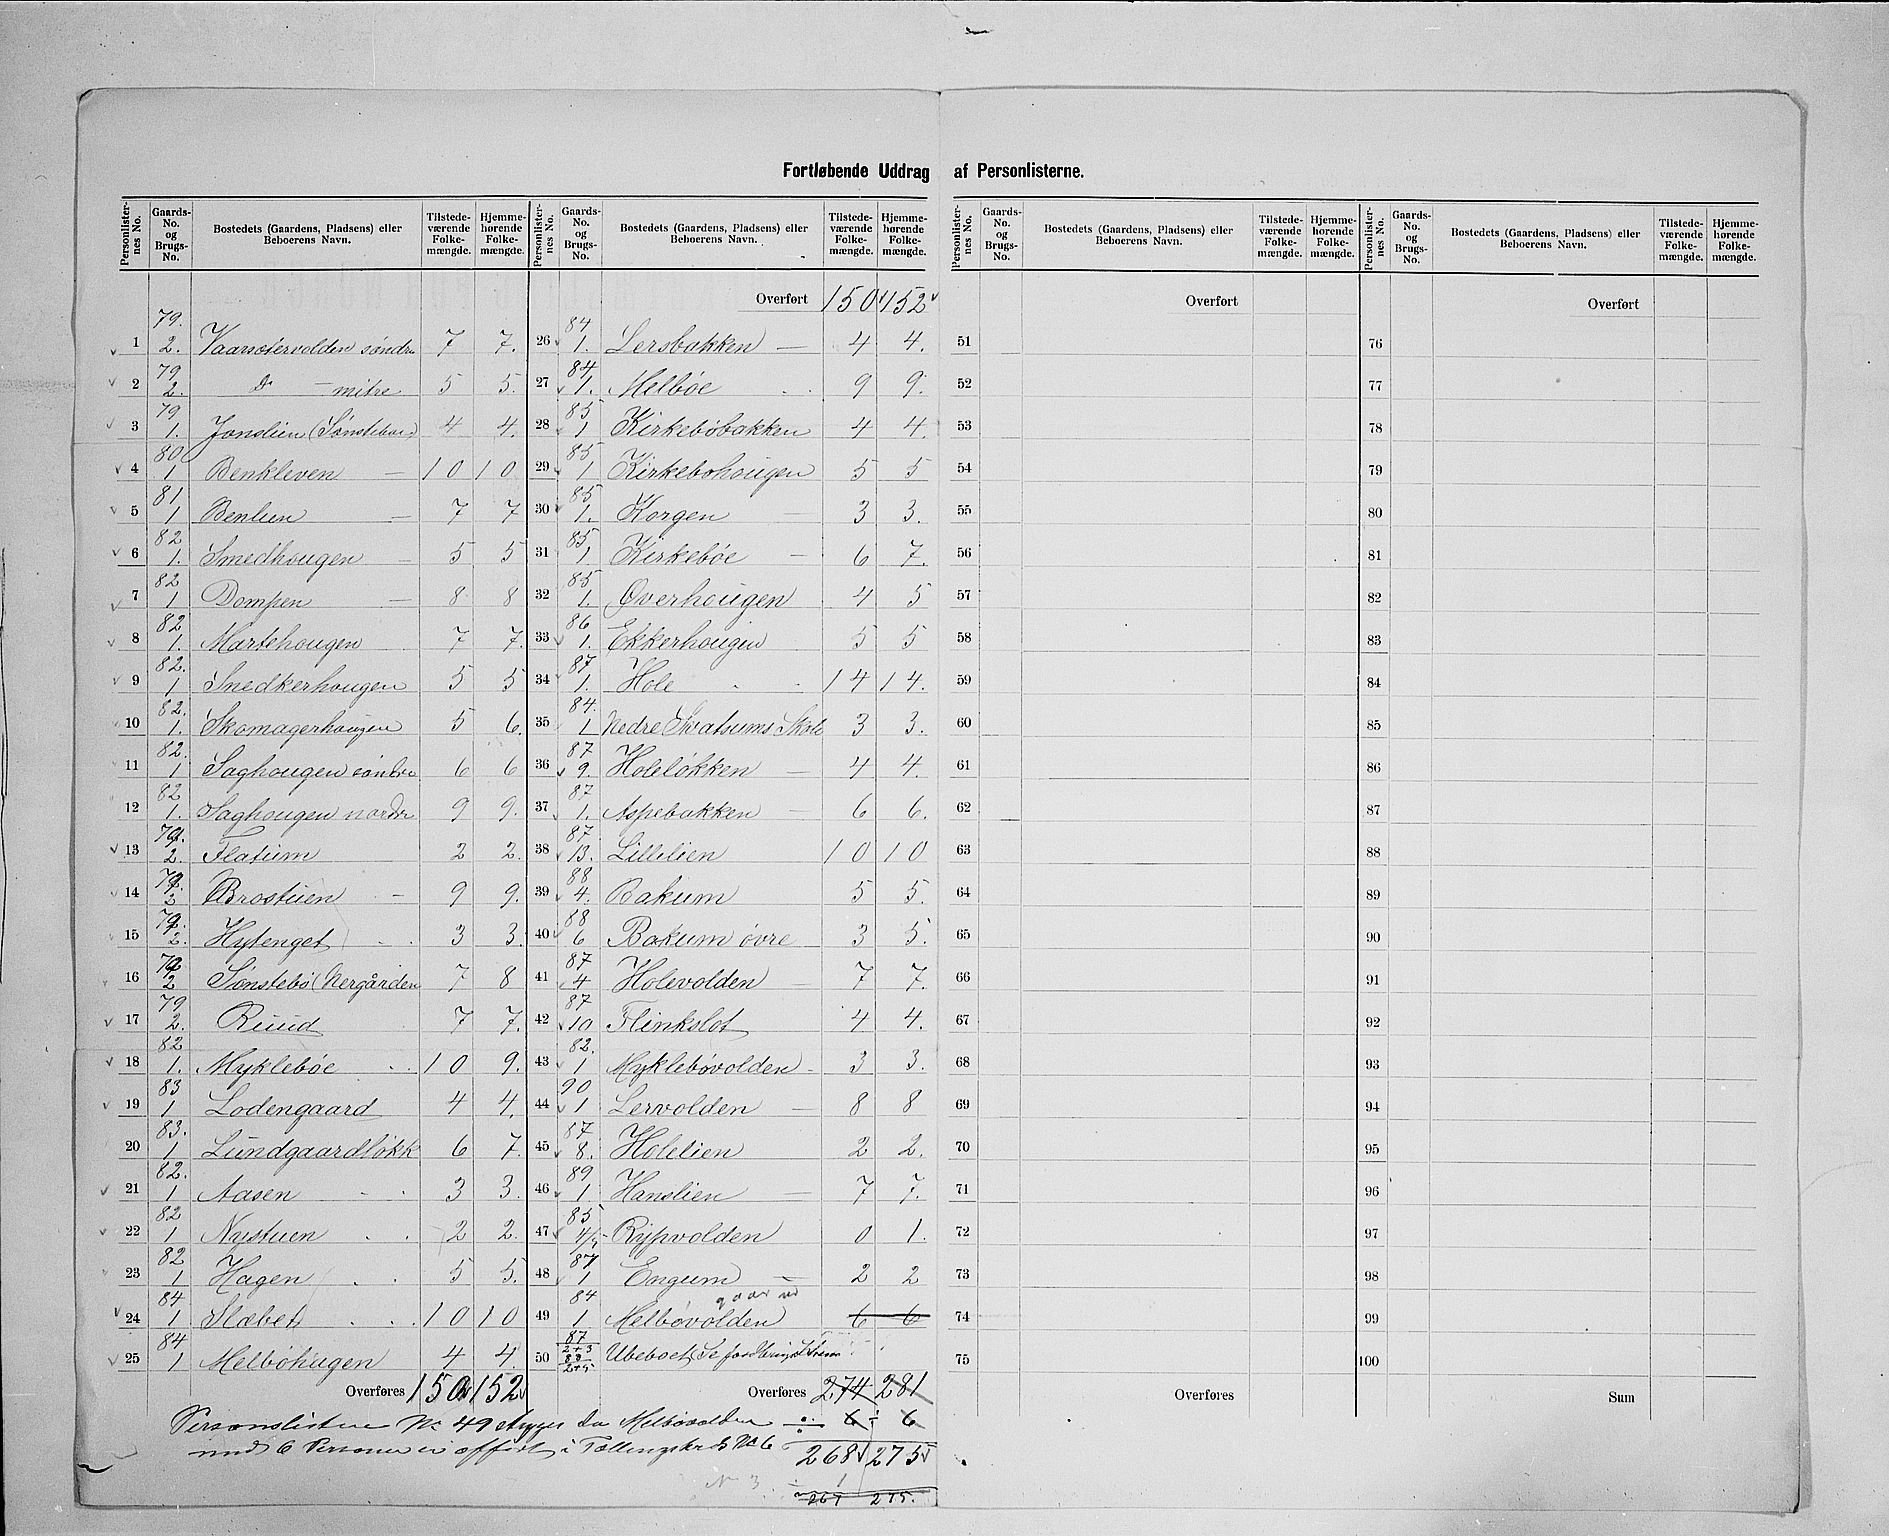 Fortløbende Uddrag af Personlisterne.
Personlister-nes No. | Gaards-No. og Brugs-No. | Bostedets (Gaardens, Pladsens) eller Beboerens Navn. | Tilstede-værende Folke-mængde. | Hjemme-hørende Folke-mængde.
1 79. 2. Vaarsætervolden søndre 7 7.
2 79 2. Do — mitre 5 5.
3 79 1. Jonslien (Sønsteboe) 4 4.
4 80 1 Benkleven — 10 10
5 81 1 Benluen — 7 7
6 82 1. Smedhougen — 5 5
7 82 1 Dompen — 8 8
8 82 1. Martehougen 7 7.
9 82. 1 Snedkerhougen 5 5
10 82. 1. Skomagerhougen 5 6.
11 82. 1 Saghougen søndre 6 6
12 82 1. Saghougen nordre 9 9.
13 79. 2. Flatum 2 2.
14 79. 2 Brostuen — 9 9.
15 79. 2. Hytenget 3 3.
16 79 2 Sønstebø (Nergården 7 8
17 79 2. Ruud 7 7.
18 82 1. Myklebøe 10 9.
19 83 1 Lodengaard 4 4.
20 83. 1 Lundgaardløkk 6 7.
21 82. 1 Aasen 3 3.
22 82 1 Nystuen 2 2.
23 82 1 Hagen 5 5.
24 84 1 Slæbet 10 10
25 84 1 Melbøhugen 4 4.
Overføres 150 152
Personlister-nes No. | Gaards-No. og Brugs-No. | Bostedets (Gaardens, Pladsens) eller Beboerens Navn. | Tilstede-værende Folke-mængde. | Hjemme-hørende Folke-mængde.
Overført 150 152
26 84 1. Lersbakken — 4 4.
27 84 1. Melbøe 9 9.
28 85 1 Kirkebøbakken 4 4.
29 85 1 Kirkebohougen 5 5
30 85 1. Korgen — 3 3.
31 85 1 Kirkebøe — 6 7.
32 85 1. Øverhougen 4 5
33 86 1. Ekkerhougen 5 5
34 87 1. Hole 14 14.
35 84. 1 Nedre Svatsums Skole 3 3.
36 87 9. Holeløkken — 4 4.
37 87 1. Aspebakken — 6 6.
38 87. 13. Lillelien 10 10
39 88 4. Bakum 5 5.
40 88 6 Bakum øvre 3 5.
41 87 4 Holevolden — 7 7.
42 87 10 Flinkslot 4 4.
43 82. 1 Myklebøvolden - 3 3.
44 90 1 Lervolden — 8 8
45 87 8. Holelien 2 2.
46 89 1 Hanslien — 7 7.
47 85 4/5 Rypvolden 0 1.
48 87 1 Engum — 2 2
49 84 1 Melbøvolden 6 6
50 87 2+3 88 2+5 Ubeboet
Overføres 274 281
Personslisten No 49 Melbøvolden ÷ 6 ÷ 6
med 6 Personer er opført i Tællingskreds No 6 268 275
N 3. ÷ 1
267 275.
Personlister-nes No. | Gaards-No. og Brugs-No. | Bostedets (Gaardens, Pladsens) eller Beboerens Navn. | Tilstede-værende Folke-mængde. | Hjemme-hørende Folke-mængde.
Overført
51
52
53
54
55
56
57
58
59
60
61
62
63
64
65
66
67
68
69
70
71
72
73
74
75
Overføres
Personlister-nes No. | Gaards-No. og Brugs-No. | Bostedets (Gaardens, Pladsens) eller Beboerens Navn. | Tilstede-værende Folke-mængde. | Hjemme-hørende Folke-mængde.
Overført
76
77
78
79
80
81
82
83
84
85
86
87
88
89
90
91
92
93
94
95
96
97
98
99
100
Sum